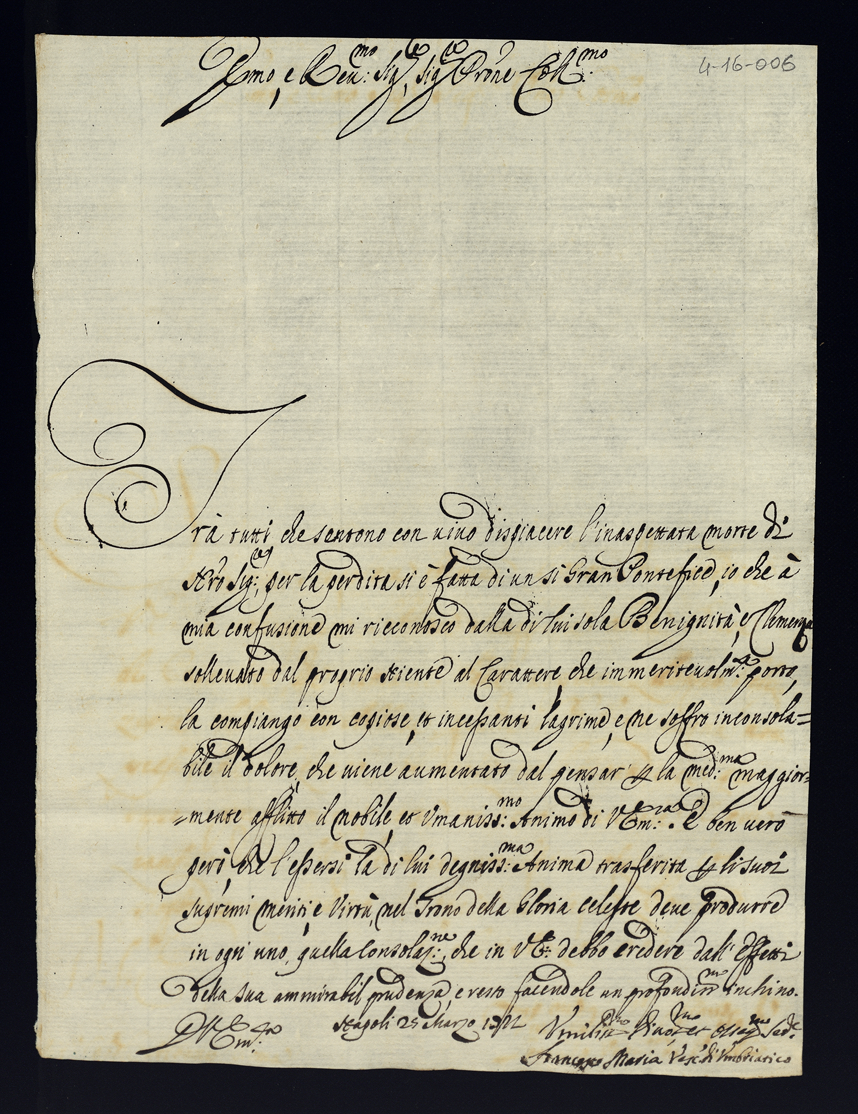 Em̃o, e Reu:mo Sig:re Sig:re Prõne Col:mo
4-16-006
Trà tutti che sentono con uiuo dispiacere l'inaspettata morte di
Ñro Sig:re, per la perdita si è fatta di un sì Gran Pontefice, io che à
mia confusione mi riconosco dalla di lui sola Benignità, e Clemenza
solleuato dal proprio niente al Carattere, che immeriteuolm:te porto,
la compiango con copiose, et incessanti lagrime, e ne soffro inconsola=
bile il dolore, che uiene aumentato dal pensar' la med:ma maggior=
=mente afflitto il nobile, et Vmaniss:mo Animo di V Em:za. È ben uero
però, che l'essersi la di lui degniss:ma Anima trasferita li suoi
supremi meriti, e Virtù, nel Trono della Gloria celeste deue produrre
in ogni uno, quella Consolaz:ne, che in V E: debbo credere dall' Effetti
della sua ammirabil prudenza, e resto facendole un profondiss:mo inchino.
D V Em:za Napoli 25 Marzo
Vmiliss:mo Diuo:mo et osseq:mo Ser:e
Francesco Maria Vesc: di Vmbriatico